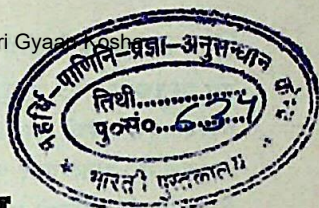 ri Gyaan Kosha
महर्षि-पाणिनि-प्रज्ञा-अनुसन्धान
तिथी..................
पु०सं० 634
* भारती पुस्तकालय *